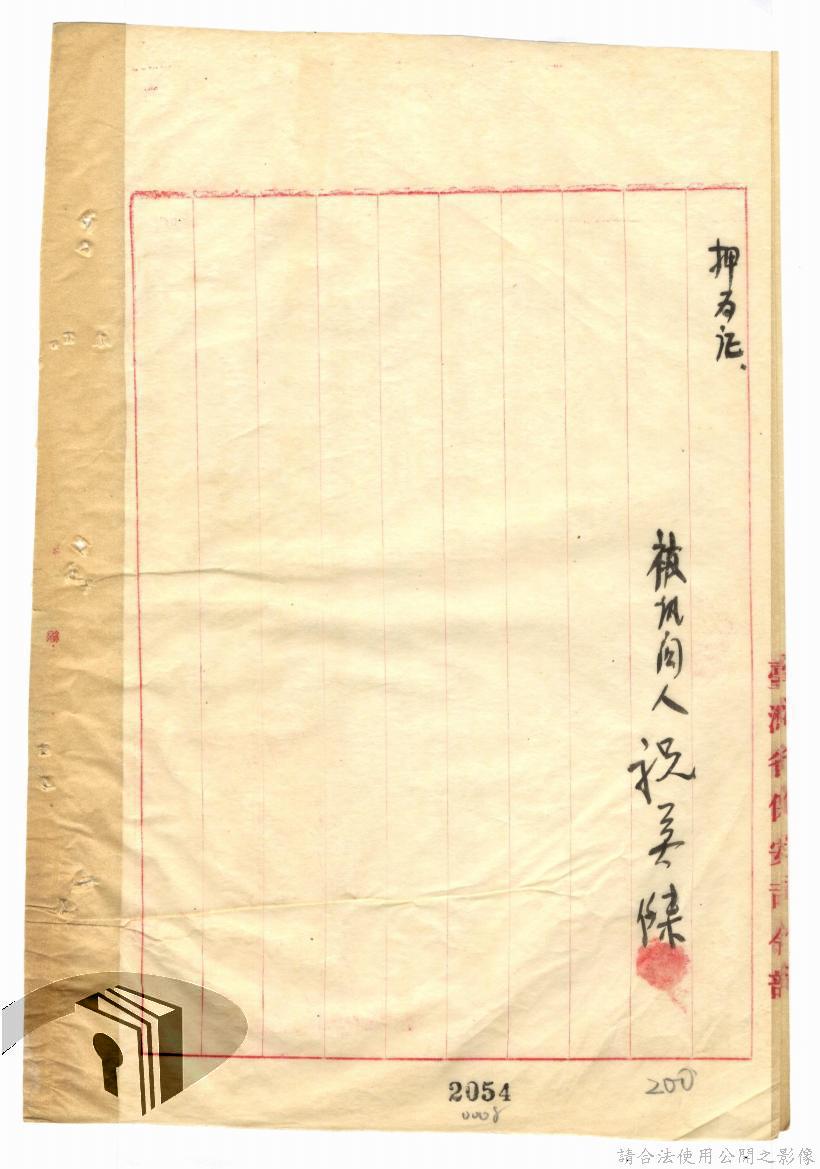 押为证.
被訊问人 祝英傑
臺灣省保安司令部
2054
0008
200
請合法使用公開之影像